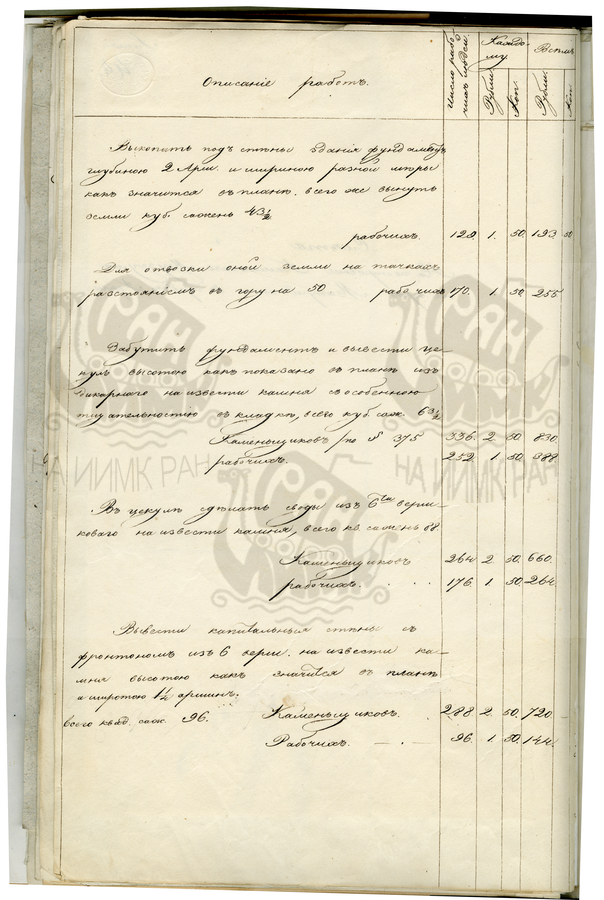 Описаніе работъ.
Число рабочихъ людей.
Каждому.
Всѣмъ
Рубли.
Коп.
Рубли.
Коп.
Выкопать подъ стѣны зданія фундаментъ
глубиною 2 Арш. и шириною разной мѣры
какъ значится въ планѣ. всего же вынуть
земли куб. сажень 43½
рабочихъ. 129. 1. 50. 193. 50
Для отвозки оной земли на тачкахъ
разстояніемъ въ гору на 50 рабочихъ 170. 1. 50. 255.
Забутить фундаментъ и вывести цо-
куль высотою какъ показано въ планѣ изъ
дикарнаго на извести камня съ особенною
тщательностію въ кладкѣ, всего куб. саж. 63½
Каменьщиковъ по № 375 336. 2. 50. 830.
рабочихъ. 252. 1. 50. 388.
Въ цокулѣ сдѣлать своды изъ 6ти верш-
коваго на извести камня, всего кв. сажень 88
Каменьщиковъ 264. 2. 50. 660.
рабочихъ. 176. 1. 50. 264.
Вывести капитальныя стѣны съ
фронтономъ изъ 6 верш. на извести ка-
мня высотою какъ значится въ планѣ
а широтою 1¼ аршинъ.
всего квад. саж. 96. Каменьщиковъ. 288. 2. 50. 720.
Рабочихъ. 96. 1. 50. 144.
НА ИИМК РАН
НА ИИМК РАН